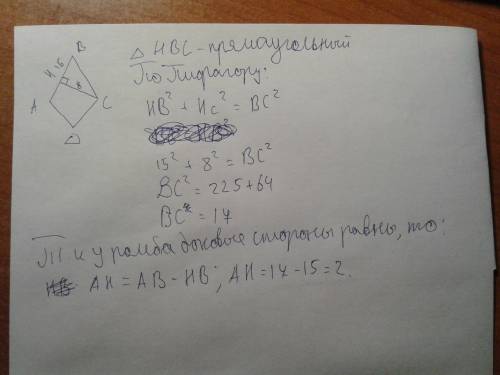 B
H 15
8
A
C
Д
△ HBC - прямоугольный
По Пифагору:
HB² + HC² = BC²
15² + 8² = BC²
BC² = 225 + 64
BC = 17
Т.к у ромба боковые стороны равны, то:
AH = AB - HB; AH = 17 - 15 = 2.